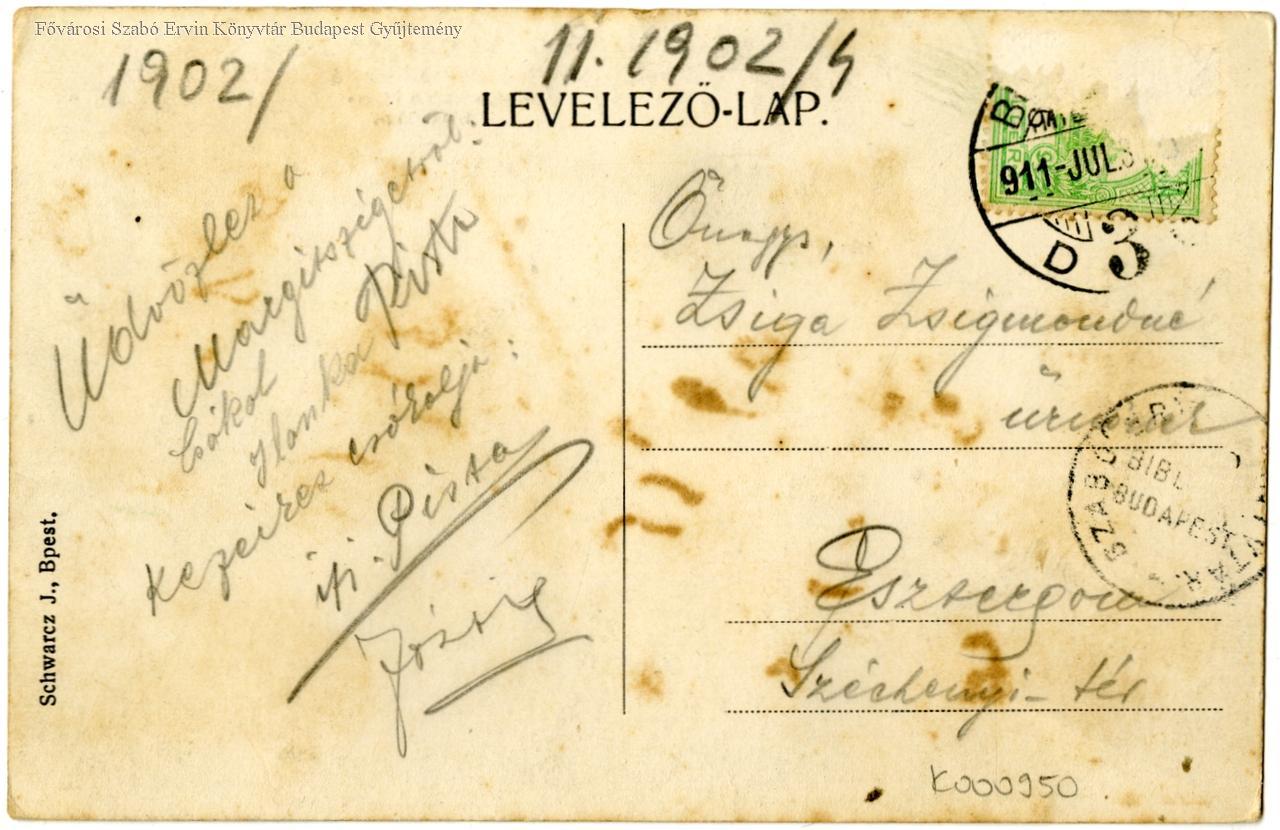 Fővárosi Szabó Ervin Könyvtár Budapest Gyűjtemény
1902/
11. 1902/4
LEVELEZŐ-LAP.
911-JUL.
D 3
Üdvözlet a
Margitszigetről.
Csókol
Ilonka Pista
Kezeit csókolja:
ifj. Pista
Őnagys,
Zsiga Zsigmondné
úrnőnek
Esztergom
Széchenyi-tér
BIBL.
BUDAPEST.
Schwarcz J., Bpest.
K000950